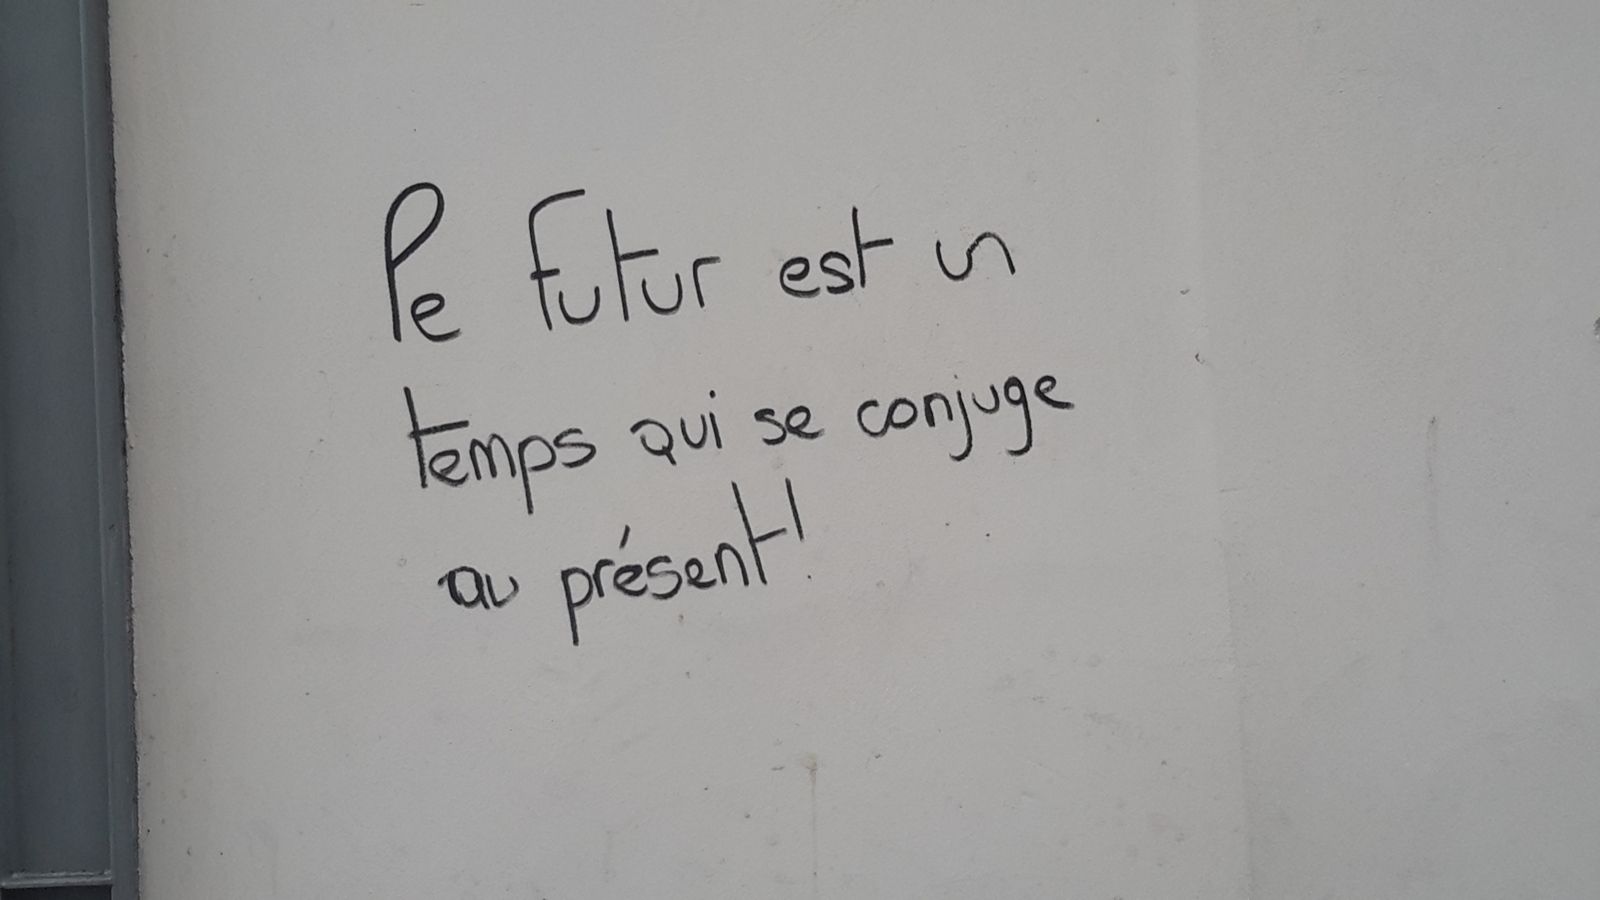 Le futur est un
temps qui se conjuge
au présent !